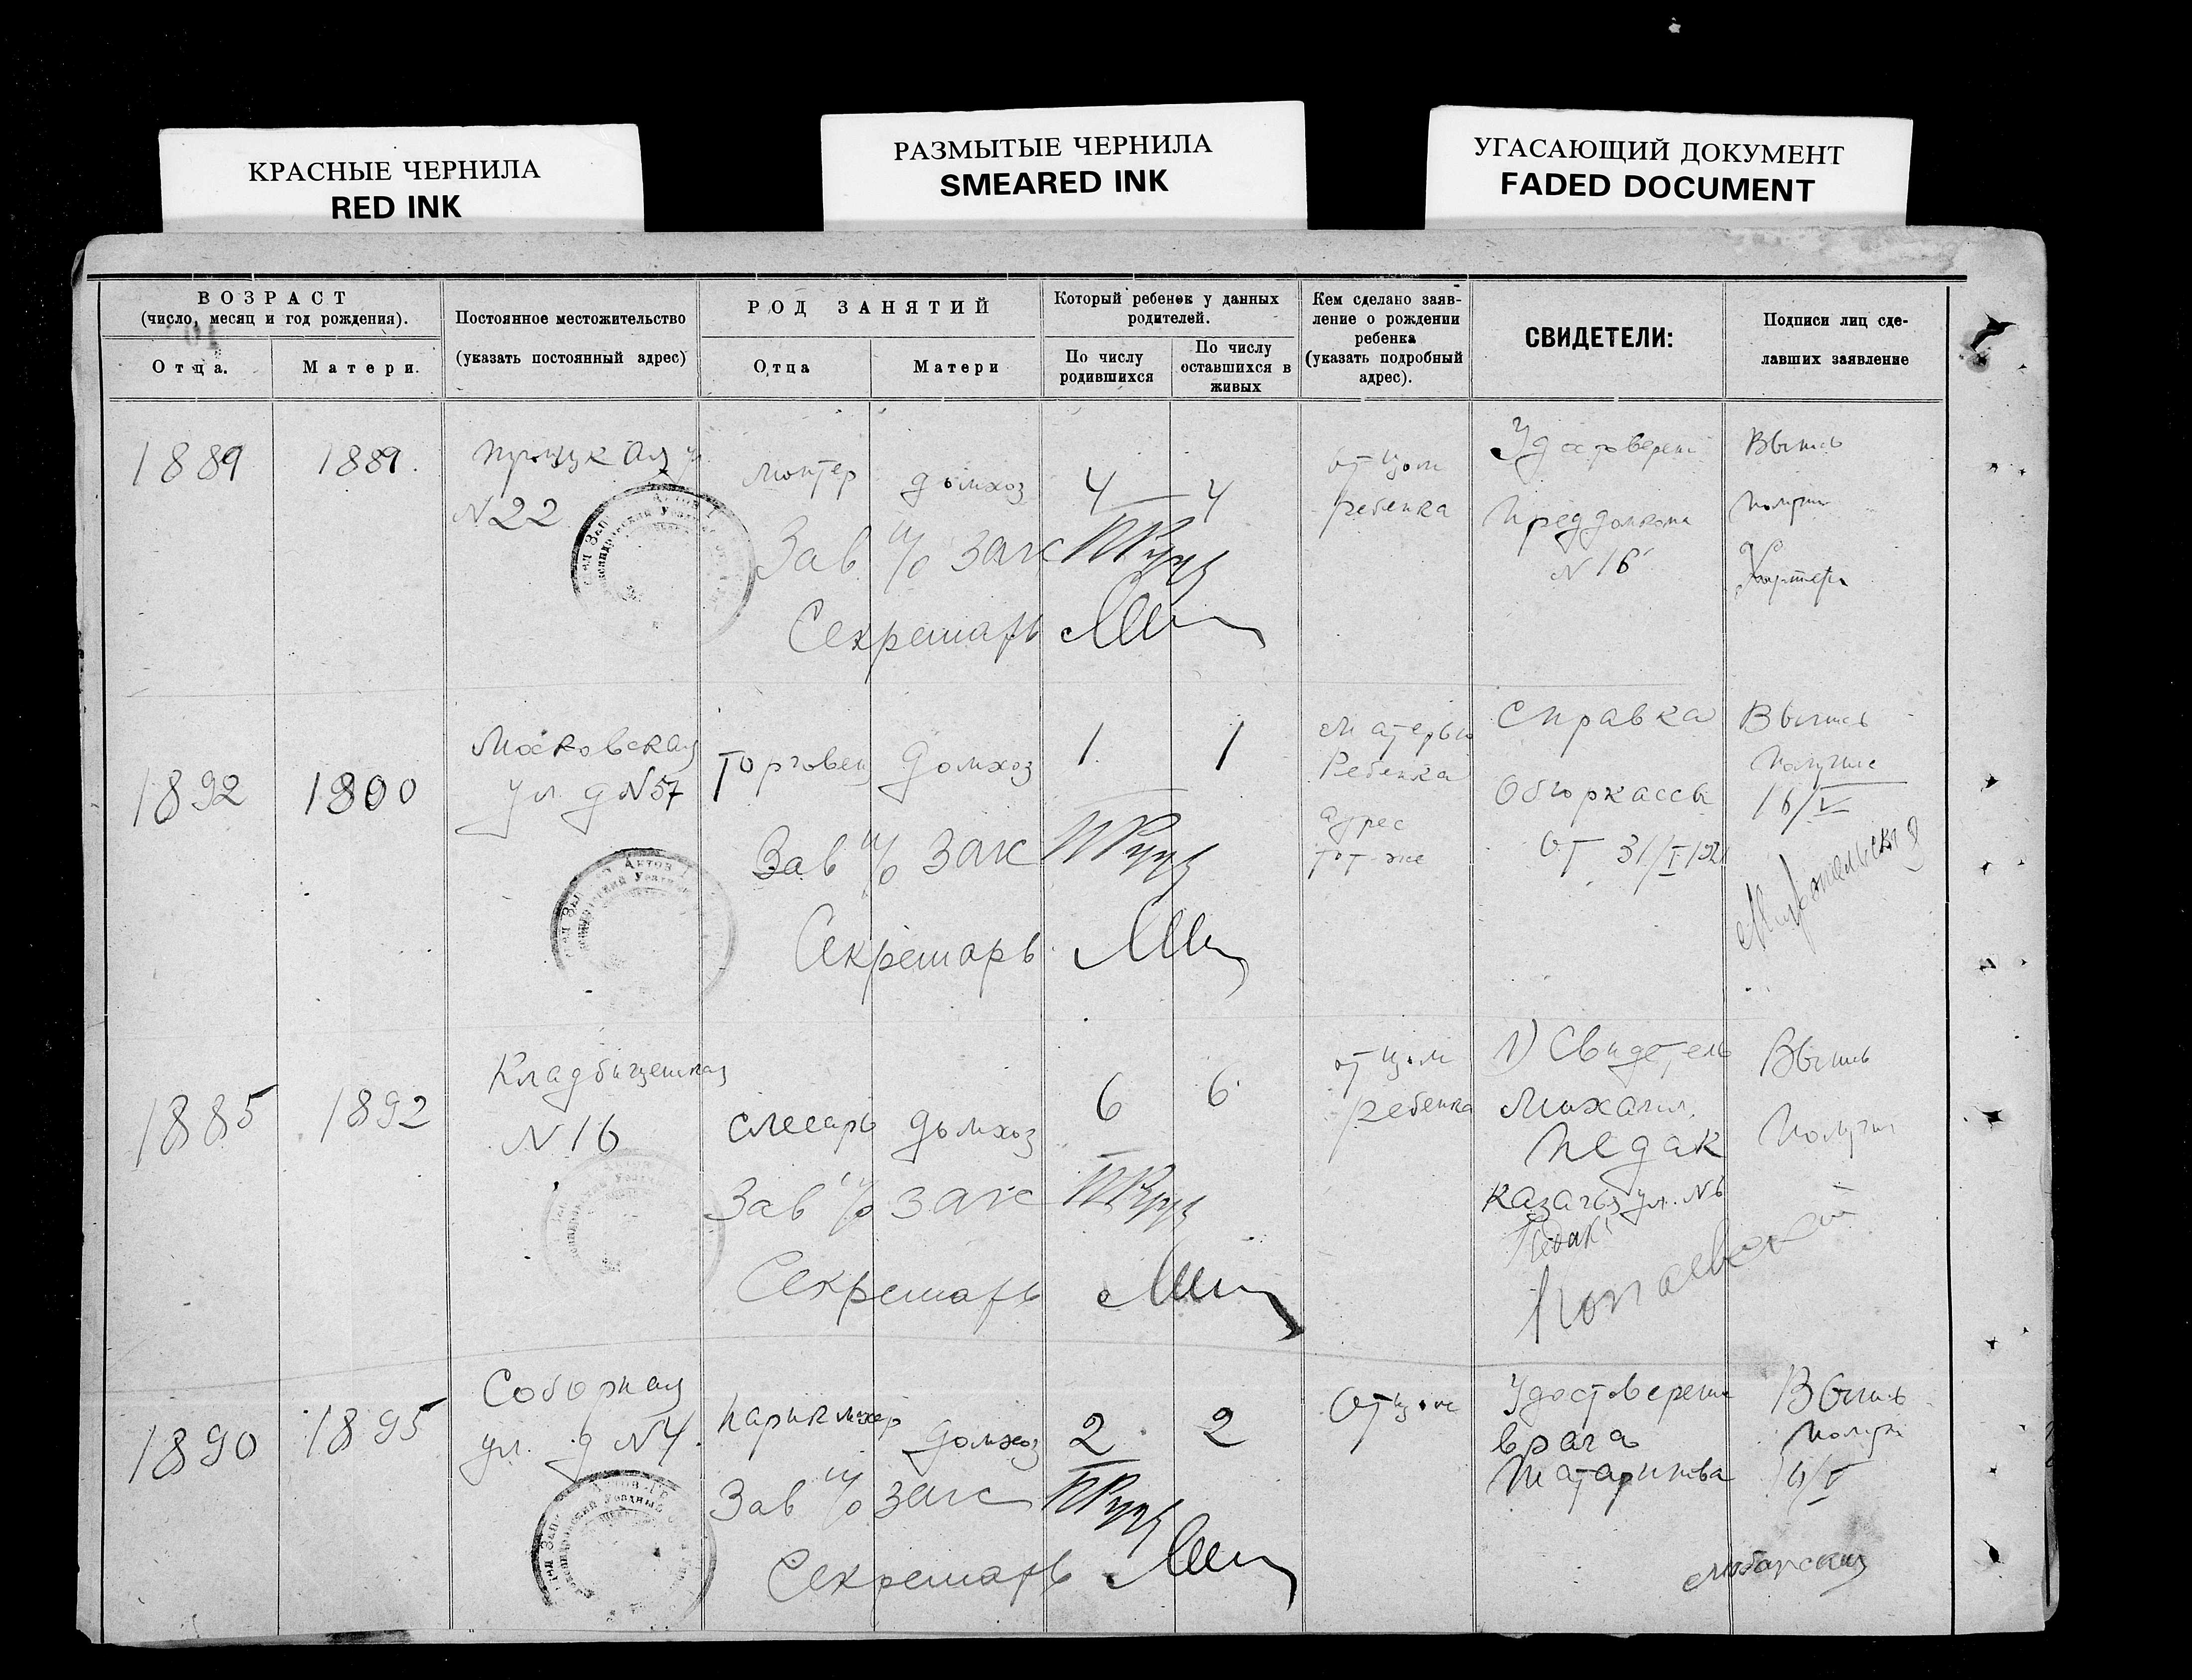 КРАСНЫЕ ЧЕРНИЛА
RED INK
РАЗМЫТЫЕ ЧЕРНИЛА
SMEARED INK
УГАСАЮЩИЙ ДОКУМЕНТ
FADED DOCUMENT
ВОЗРАСТ
(число, месяц и год рождения).
Отца.
Матери.
Постоянное местожительство
(указать постоянный адрес)
РОД ЗАНЯТИЙ
Отца
Матери
Который ребенок у данных
родителей.
По числу
родившихся
По числу
оставшихся в
живых
Кем сделано заяв-
ление о рождении
ребенка
(указать подробный
адрес).
СВИДЕТЕЛИ:
Подписи лиц сде-
лавших заявление
1889
1889.
N 22
монтер
домхоз
4
4
отцом
ребенка
Удостоверен
Преддомкома
N 16
Выпись
Зав п/о Загс
Секретарь
1892
1800
Московская
ул. д N 57
Торговец
домхоз
1.
1
Матерью
Ребенка
адрес
тот-же
Справка
от 31/I/192
Выпись
получила
16/V
Зав п/о Загс
Секретарь
1885
1892
Кладбищенская
N 16
слесарь
домхоз
6
6
отцом
ребенка
1) Свидетель
Михаил
Педак
Казачья ул. N 6
Педак
Выпись
Получил
Зав п/о загс
Секретарь
1890
1895
Соборная
ул. д N 4.
парикмахер
домхоз
2
2
Отцом
Удостоверени
врача
Татаринова
Выпись
Зав п/о загс
Секретарь